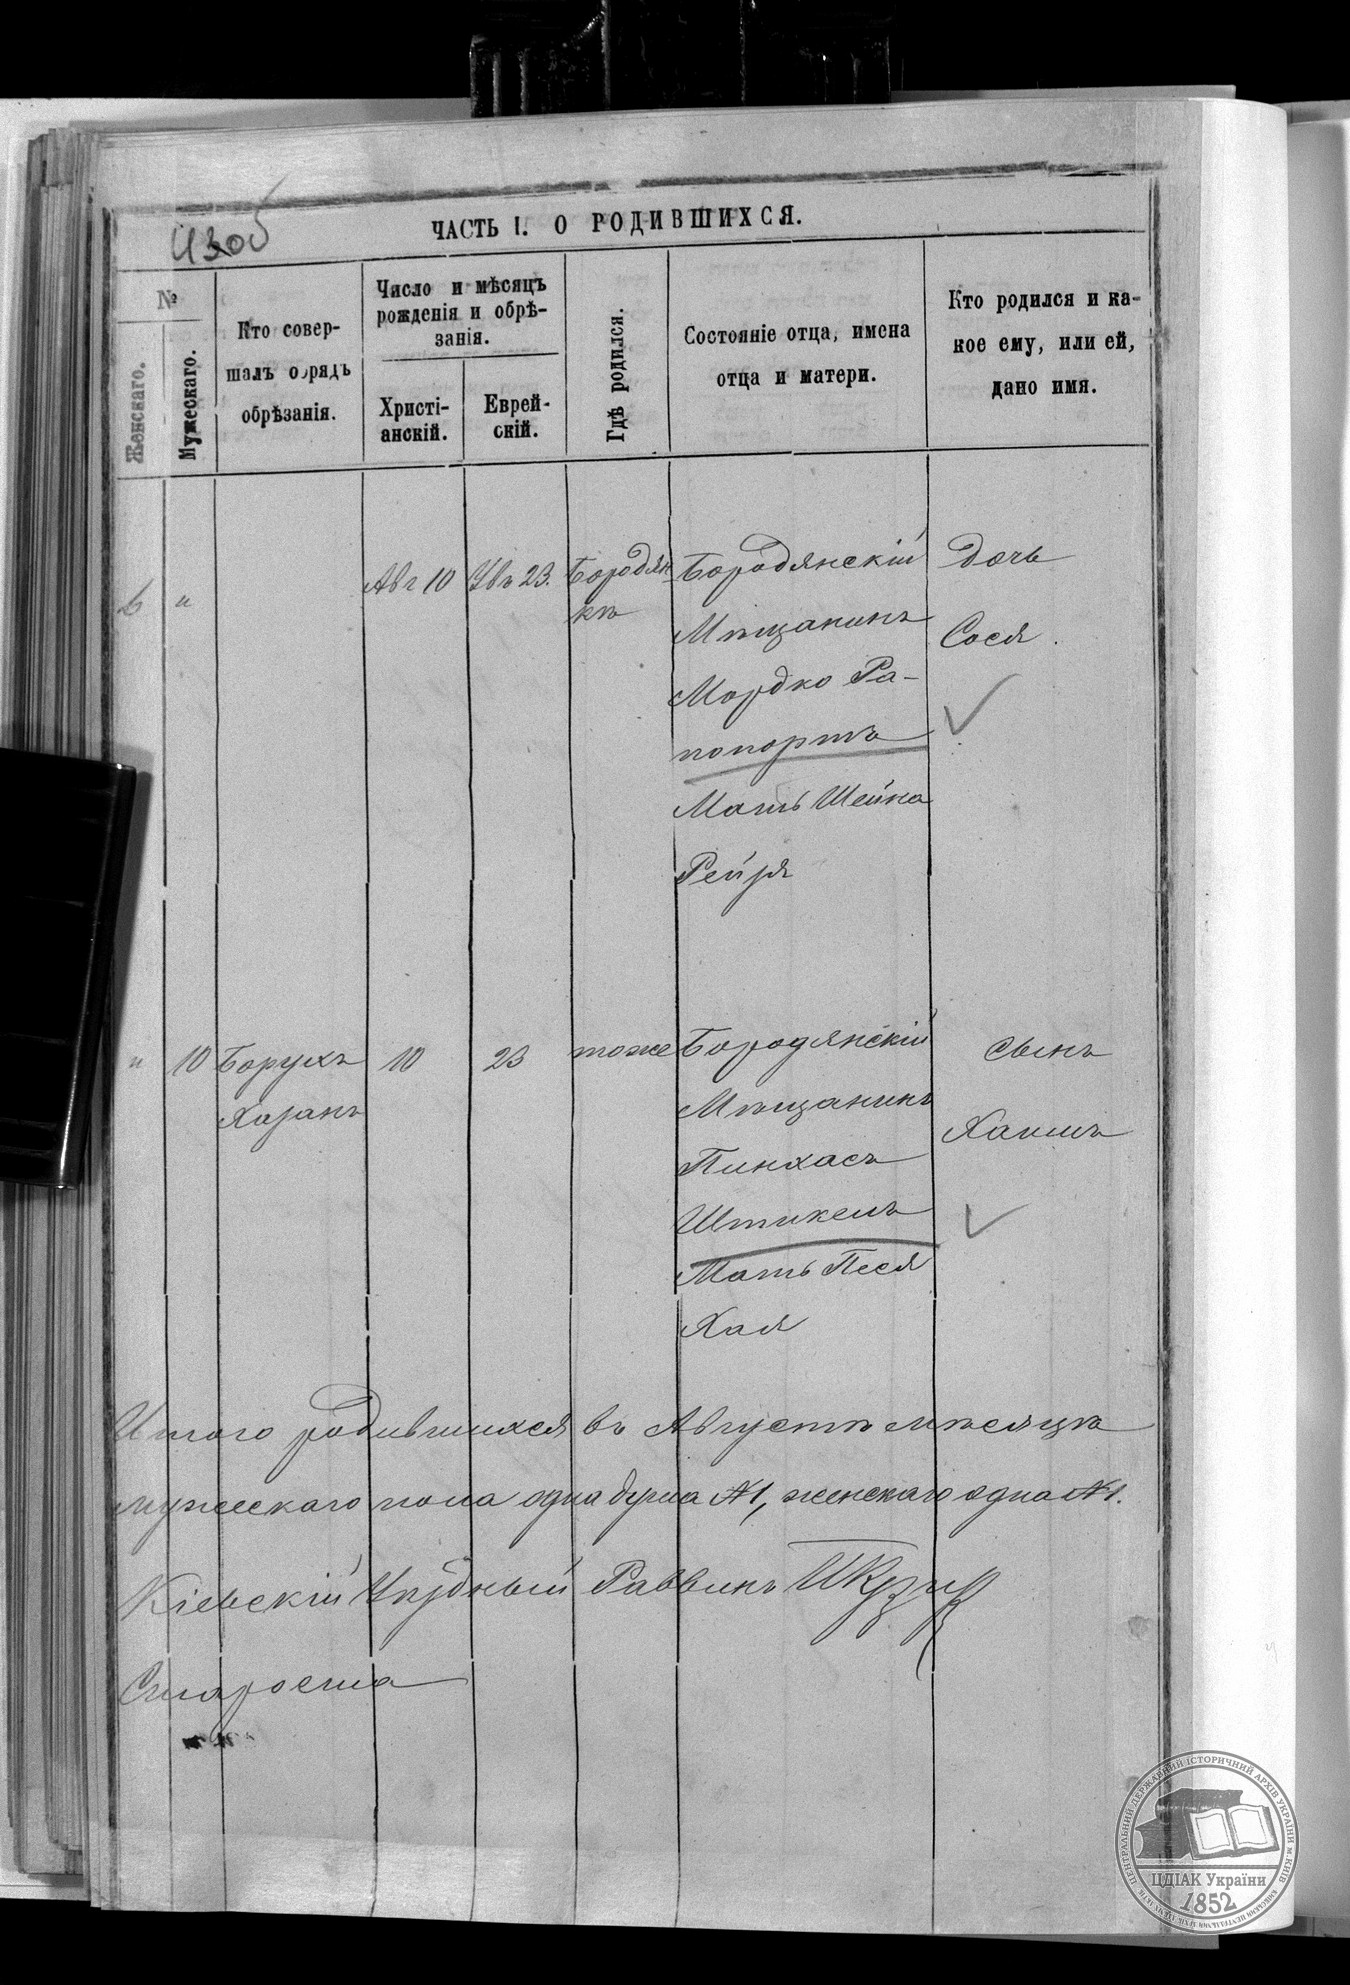 ЧАСТЬ I. О РОДИВШИХСЯ.
№
Женскаго.
Мужескаго.
Кто совер-
шалъ обрядъ
обрѣзанія.
Число и мѣсяцъ
рожденія и обрѣ-
занія.
Христі-
анскій.
Еврей-
скій.
Гдѣ родился.
Состояніе отца, имена
отца и матери.
Кто родился и ка-
кое ему, или ей,
дано имя.
6 " Авг 10 23. Бородян
кѣ
Бородянскій
Мѣщанинъ
Мордко Ра-
попортъ
Мать Шейна
Рейзя
Дочь
Сося.
" 10 Борухъ
Хазанъ
10 23 тоже
Бородянскій
Мѣщанинъ
Пинхасъ
Мать Песя
Хая
Сынъ
Хаимъ
Итого родившихся въ Августѣ мѣсяцѣ
мужескаго пола одна душа №1, женскаго одна №1.
Кіевскій Уѣздный Раввинъ
Староста
ЦЕНТРАЛЬНИЙ ДЕРЖАВНИЙ ІСТОРИЧНИЙ АРХІВ УКРАЇНИ М.КИЇВ
ЦДІАК України
1852